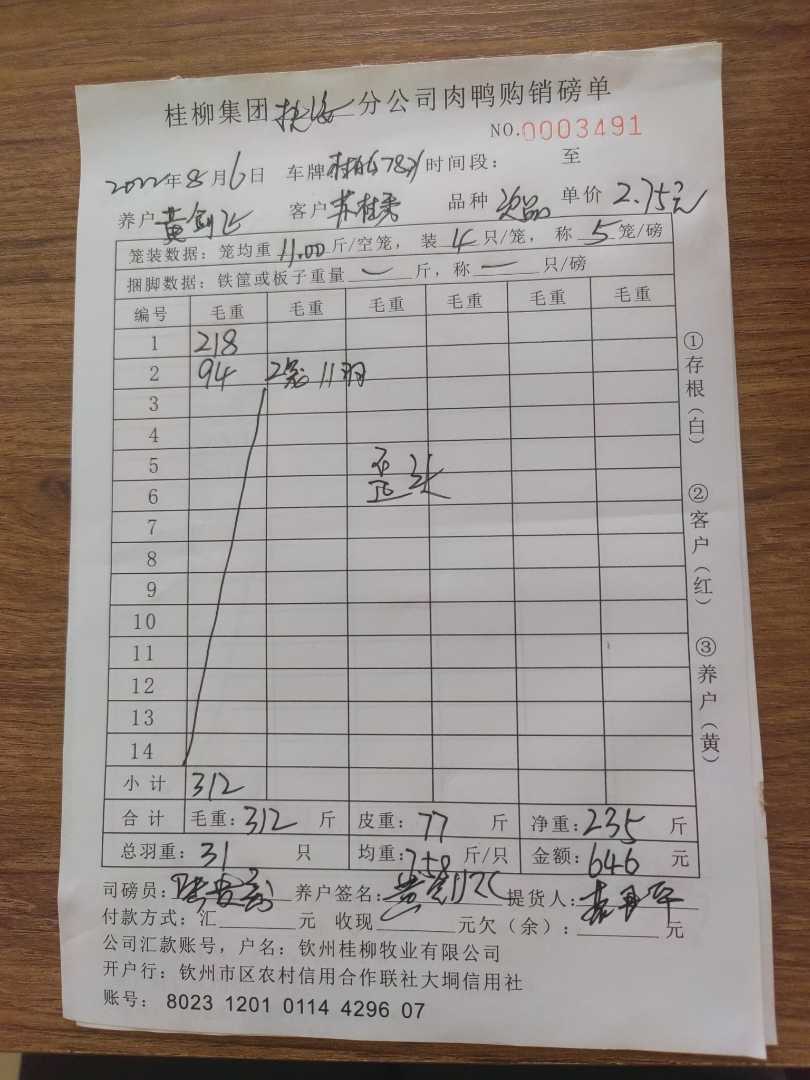 桂柳集团 分公司肉鸭购销磅单
NO.0003491
2022年8月6日 车牌 时间段: 至
养户 黄剑飞 客户 苏桂秀 品种 次品 单价 2.75元
笼装数据: 笼均重 11.00 斤/空笼, 装 4 只/笼, 称 5 笼/磅
捆脚数据: 铁筐或板子重量 一 斤, 称 一 只/磅
编号 毛重 毛重 毛重 毛重 毛重 毛重
1 218
2 94 2笼 11羽
3
4
5 歪头
6
7
8
9
10
11
12
13
14
小计 312
合计 毛重: 312 斤 皮重: 77 斤 净重: 235 斤
总羽重: 31 只 均重: 7.58 斤/只 金额: 646 元
司磅员: 养户签名: 黄剑飞 提货人:
付款方式: 汇 元 收现 元欠(余): 元
公司汇款账号, 户名: 钦州桂柳牧业有限公司
开户行: 钦州市区农村信用合作联社大垌信用社
账号: 8023 1201 0114 4296 07
①存根(白)
②客户(红)
③养户(黄)